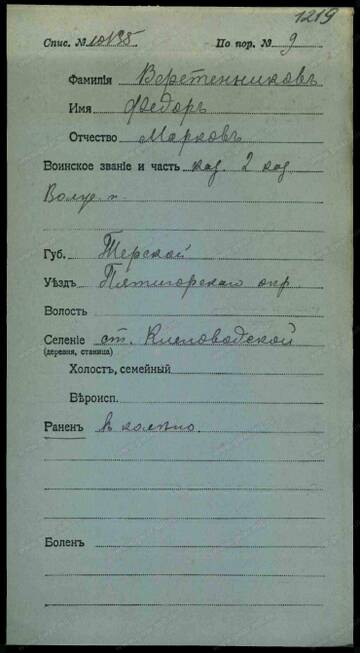 1219
Спис. № 10185 По пор. № 9
Фамилія Веретенниковъ
Имя Федоръ
Отчество Марковъ
Воинское званіе и часть каз. 2 каз
Волг. п.
Губ. Терской
Уѣздъ Пятигорскаго окр.
Волость
Селеніе ст. Кисловодской
(деревня, станица)
Холостъ, семейный
Вѣроисп.
Раненъ в колѣно.
Боленъ